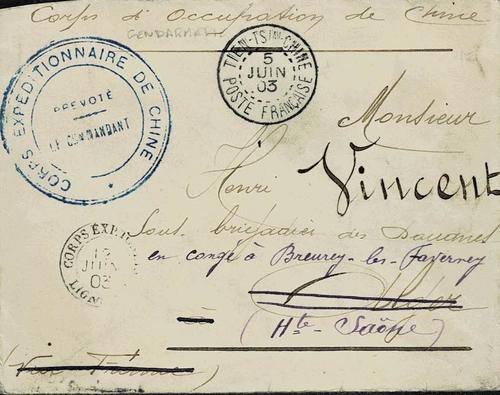 Corps d'Occupation de Chine
GENDARMERIE
CORPS EXPÉDITIONNAIRE DE CHINE
PRÉVOTÉ
LE COMMANDANT
TIEN-TSIN-CHINE
5
JUIN
03
POSTE FRANÇAISE
Monsieur
Henri Vincent
Sous-brigadier des Douanes
en congé à Breurey-les-Faverney
(Hte-Saône)
CORPS EXP
JUIN
03
LIGN